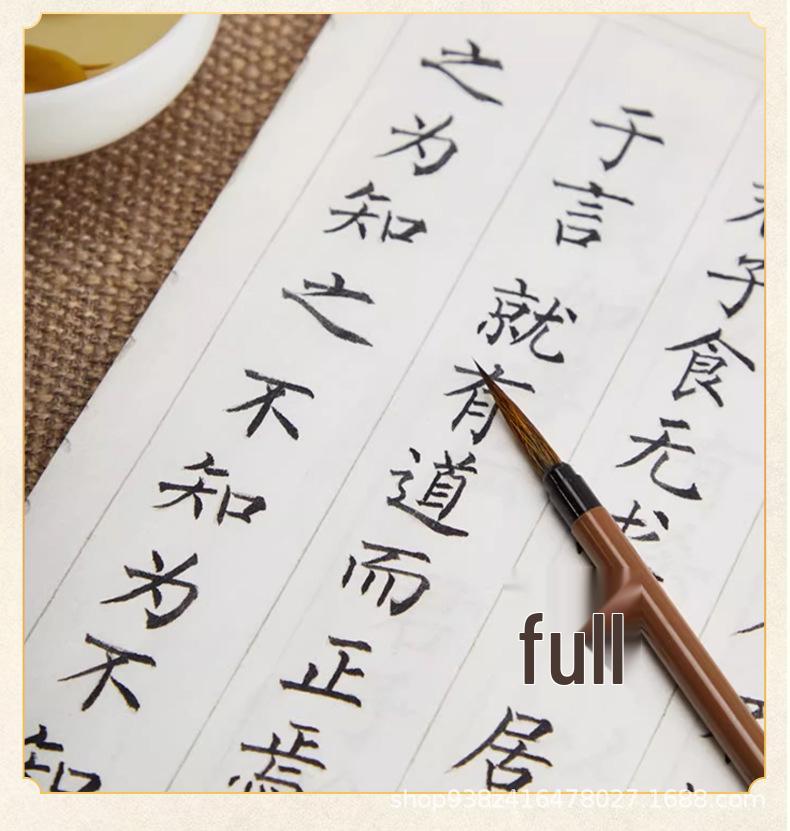 子食无求full居
于言就有道而正焉
之为知之不知为不知
shop9382416478027.1688.com